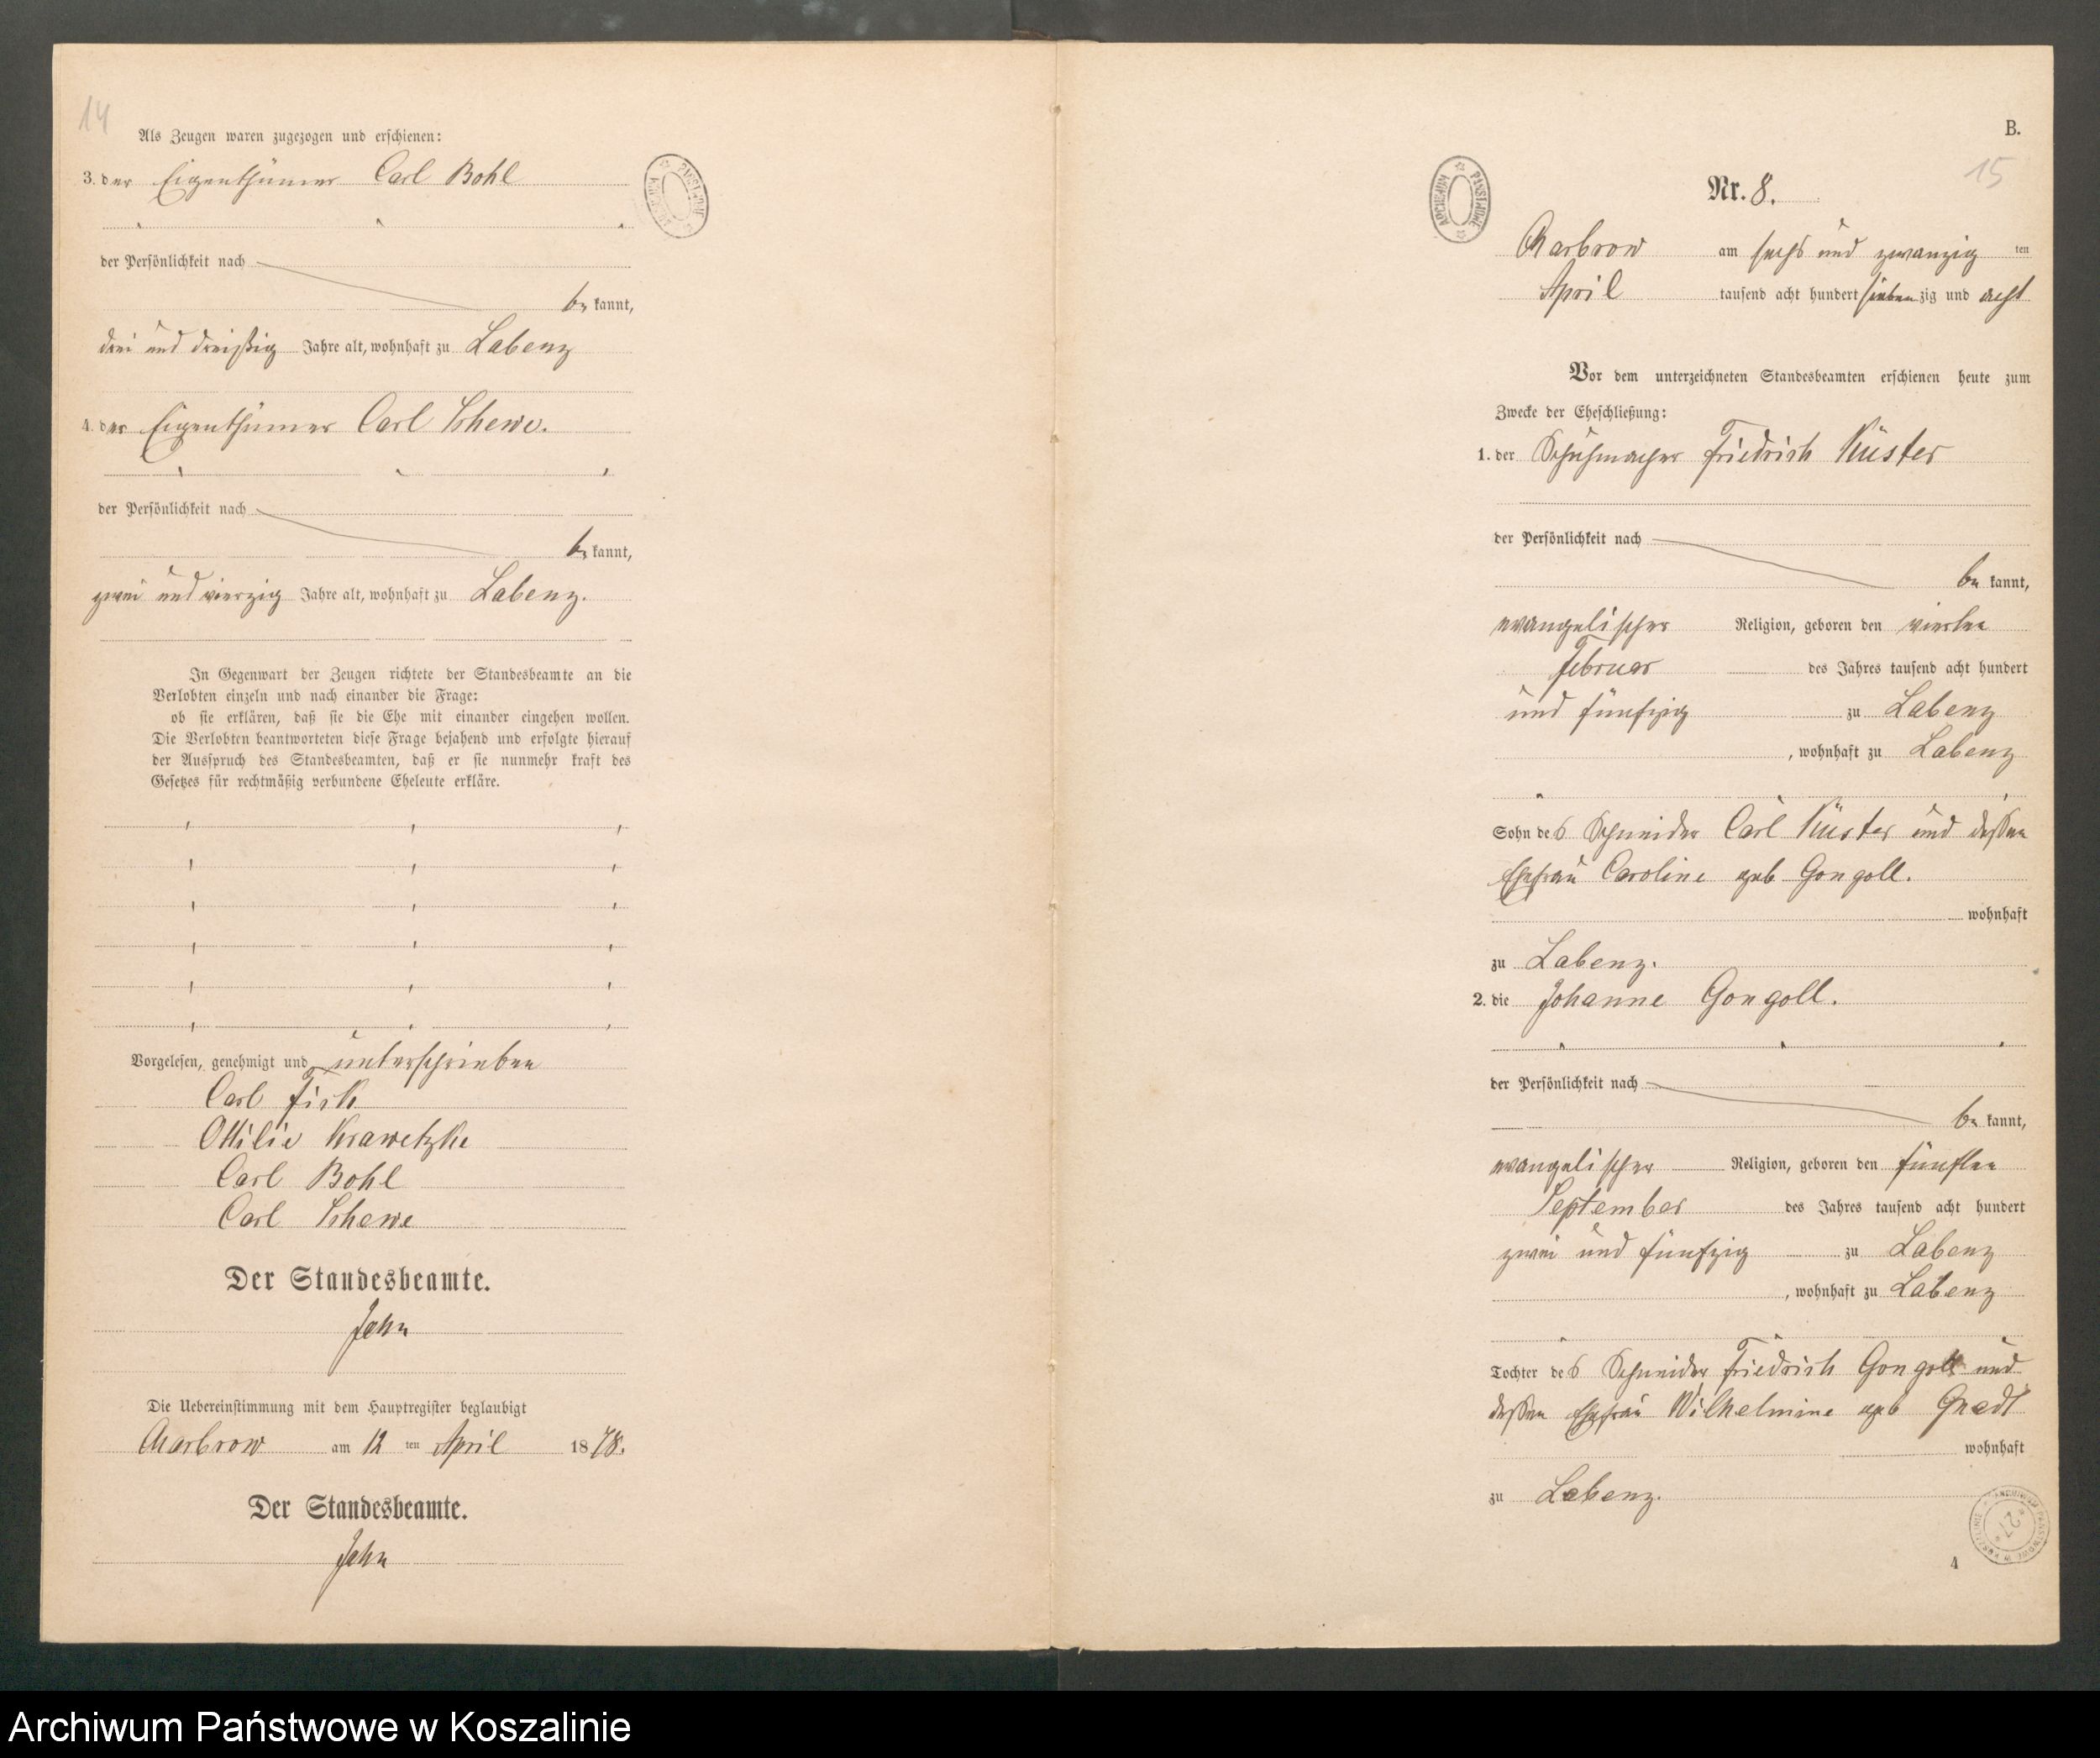 14
Als Zeugen waren zugezogen und erschienen:
3. der Eigenthümer Carl Bohl
der Persönlichkeit nach
be kannt,
drei und dreißig Jahre alt, wohnhaft zu Labenz
4. der Eigenthümer Carl Schewe.
der Persönlichkeit nach
be kannt,
zwei und vierzig Jahre alt, wohnhaft zu Labenz.
In Gegenwart der Zeugen richtete der Standesbeamte an die
Verlobten einzeln und nach einander die Frage:
ob sie erklären, daß sie die Ehe mit einander eingehen wollen.
Die Verlobten beantworteten diese Frage bejahend und erfolgte hierauf
der Ausspruch des Standesbeamten, daß er sie nunmehr kraft des
Gesetzes für rechtmäßig verbundene Eheleute erkläre.
Vorgelesen, genehmigt und unterschrieben
Carl Fick
Ottilie Krawetzke
Carl Bohl
Carl Schewe
Der Standesbeamte.
Jahn
Die Uebereinstimmung mit dem Hauptregister beglaubigt
am 12 ten April 1878.
Der Standesbeamte.
Jahn
ARCHIWUM PAŃSTWOWE
B.
15
Nr. 8.
am sechs und zwanzig ten
April tausend acht hundert siebenzig und acht
Vor dem unterzeichneten Standesbeamten erschienen heute zum
Zwecke der Eheschließung:
1. der Schuhmacher Friedrich Küster
der Persönlichkeit nach
be kannt,
evangelischer Religion, geboren den vierten
Februar des Jahres tausend acht hundert
und fünfzig zu Labenz
, wohnhaft zu Labenz
Sohn des Schneider Carl Küster und dessen
Ehefrau Caroline geb Gongoll.
wohnhaft
zu Labenz.
2. die Johanne Gongoll.
der Persönlichkeit nach
be kannt,
evangelischer Religion, geboren den fünften
September des Jahres tausend acht hundert
zwei und fünfzig zu Labenz
, wohnhaft zu Labenz
Tochter des Schneider Friedrich Gongoll und
dessen Ehefrau Wilhelmine geb
wohnhaft
zu Labenz.
4
Archiwum Państwowe w Koszalinie